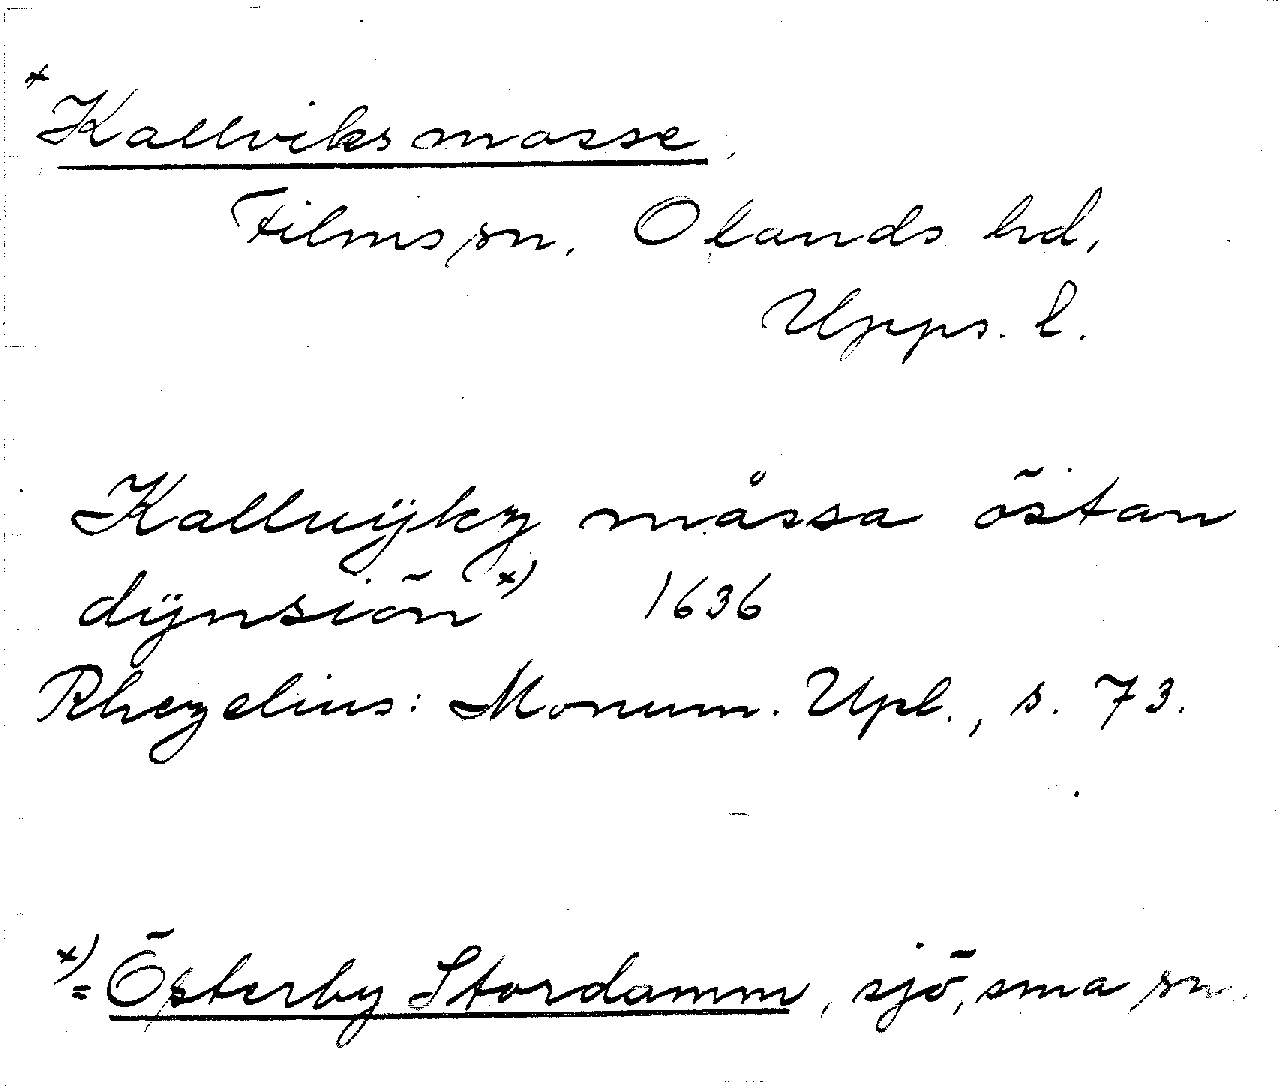 × Kallviksmosse,
Films sn, Olands hd,
Upps. l.
Kalluÿkz måssa östan
dÿnsiön ×) 1636
Rhezelius: Monum. Upl., s. 73.
×) = Österby Stordamm, sjö, sma sn.